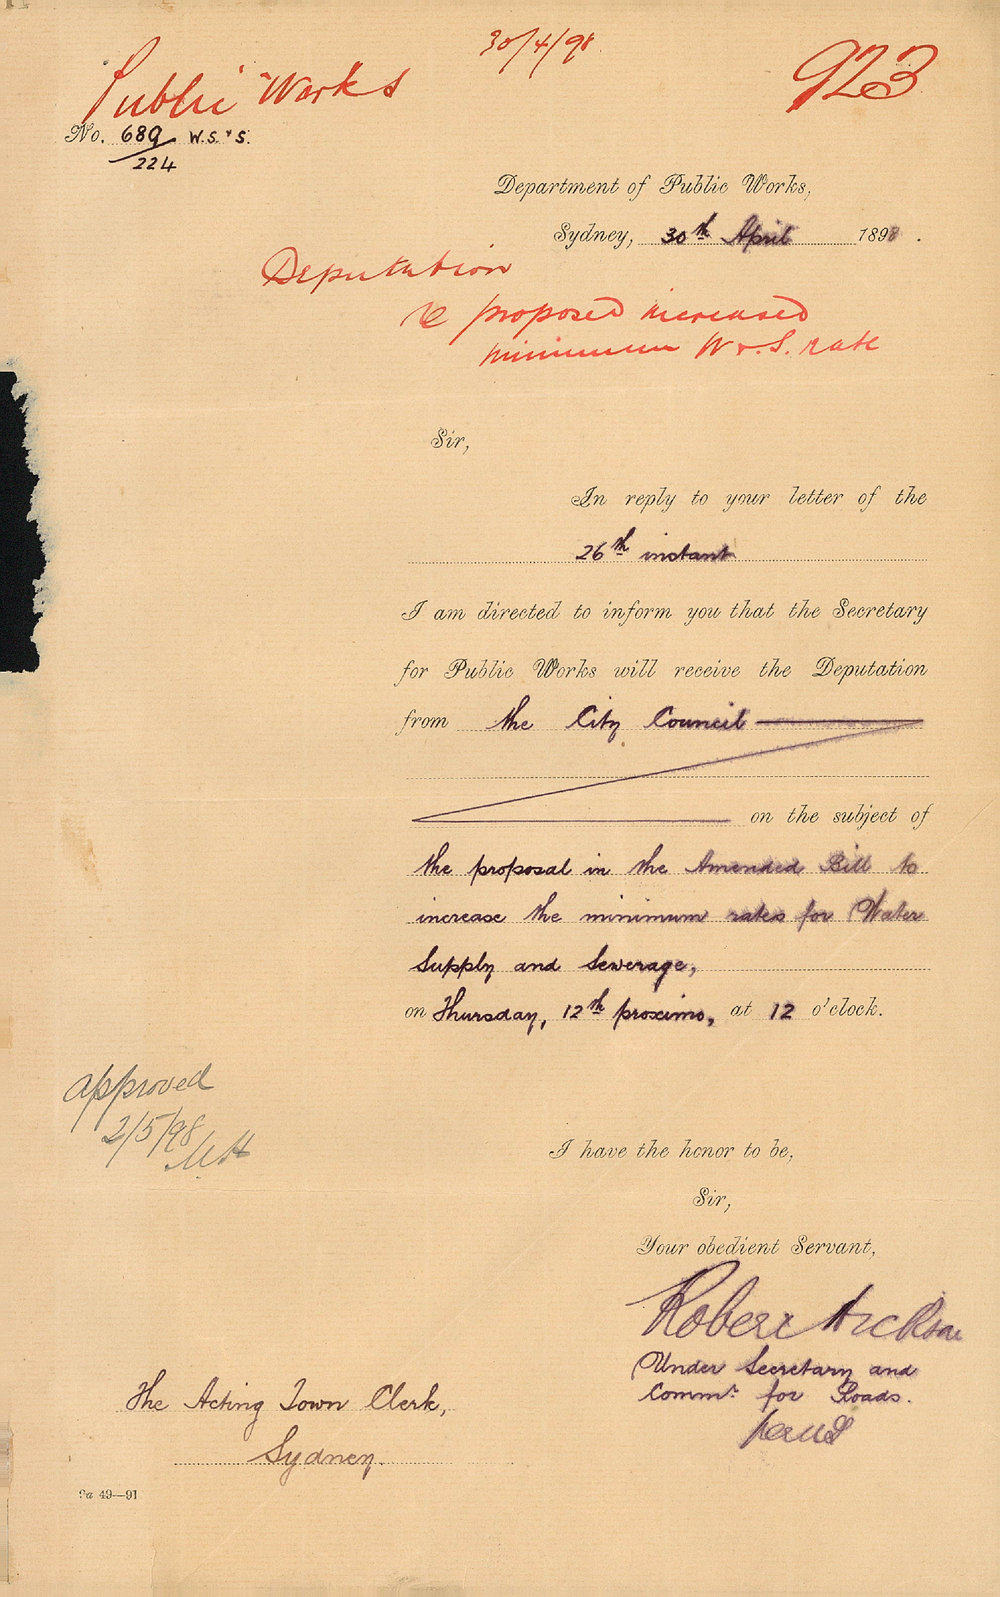 30/4/98
923
Public Works
No. 689 W.S.&S.
224
Department of Public Works,
Sydney, 30th April 1898.
Deputation
re proposed increased
minimum W&S. rate
Sir,
In reply to your letter of the
26th instant
I am directed to inform you that the Secretary
for Public Works will receive the Deputation
from the City Council
on the subject of
the proposal in the Amended Bill to
increase the minimum rates for Water
Supply and Sewerage,
on Thursday, 12th proximo, at 12 o'clock.
approved
2/5/98
I have the honor to be,
Sir,
Your obedient Servant,
Robert Hickson
Under Secretary and
Commr. for Roads.
The Acting Town Clerk,
Sydney.
9a 49—91